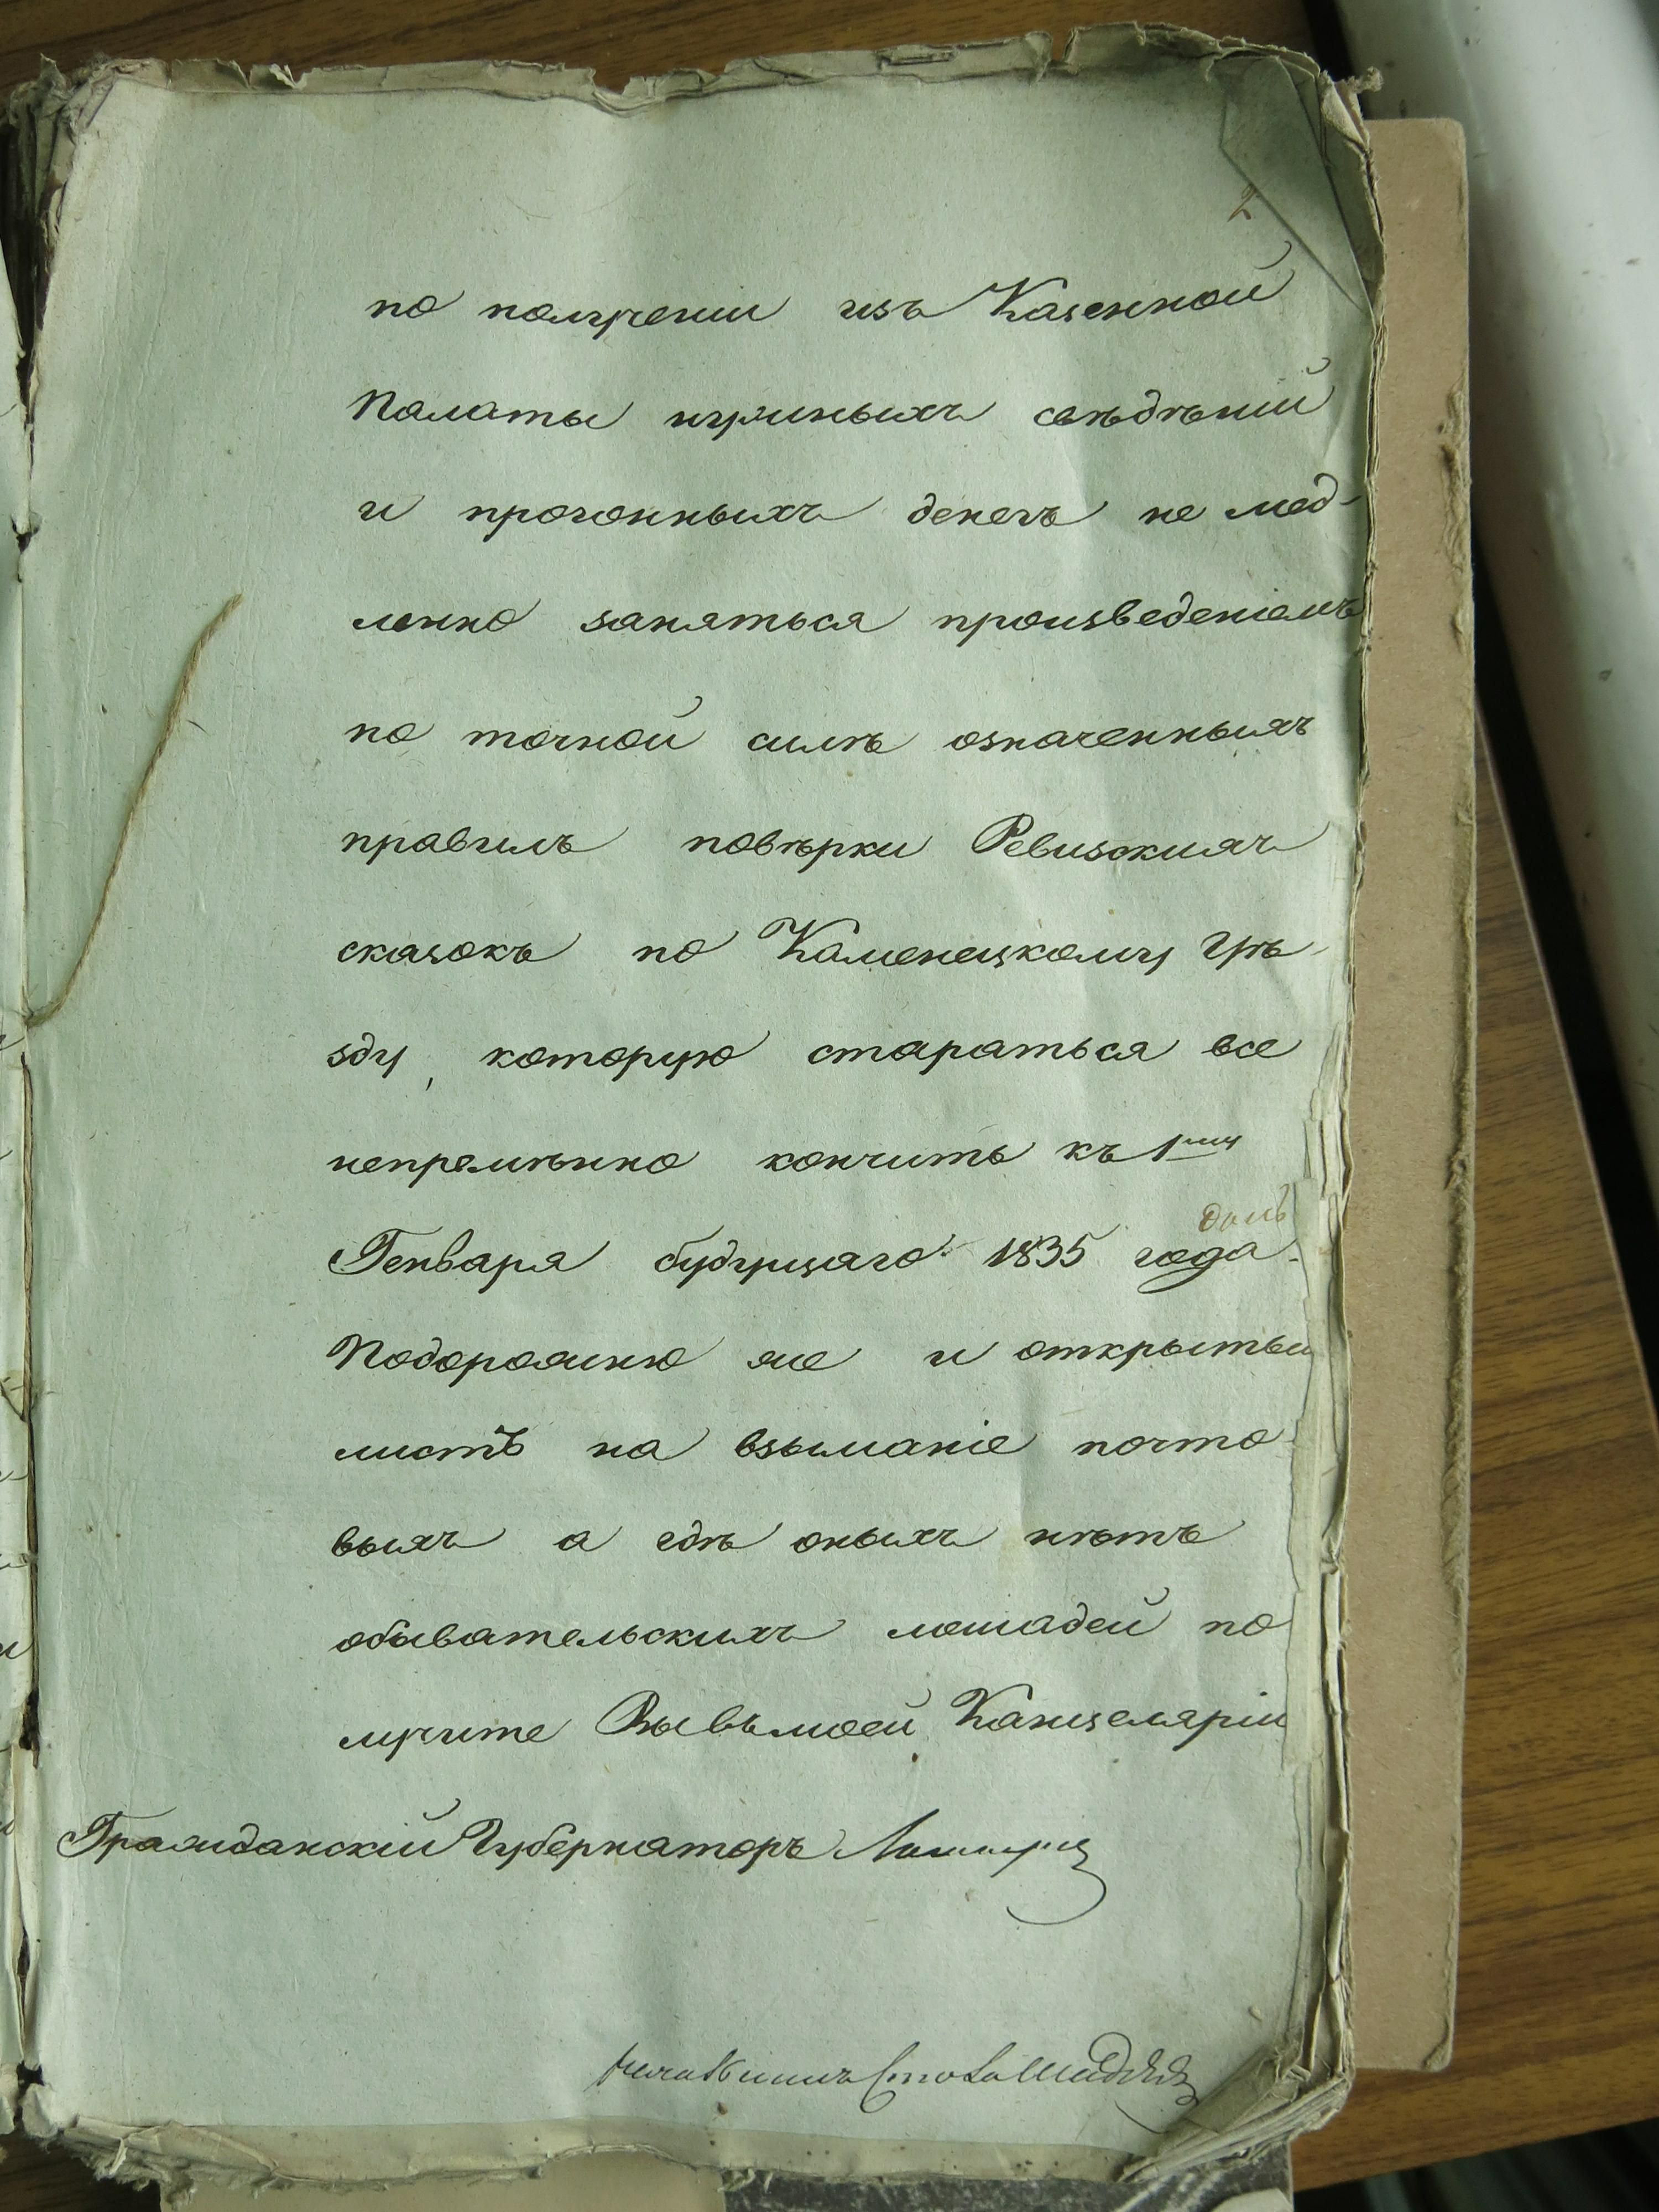 2
по полученіи изъ Казенной
Палаты нужныхъ свѣдѣній
и прогонныхъ денегъ не мед-
ленно заняться произведеніемъ
по точной силѣ означенныхъ
правилъ повѣрки Ревизскихъ
сказокъ по Каменецкому Уѣ-
зду, которую стараться все
непремѣнно кончить къ 1му
Генваря будущаго 1835 года.
Подорожню же и открытый
листъ на взыманіе почто-
выхъ а гдѣ оныхъ нѣтъ
обывательскихъ лошадей по
лучите Вы въ моей Канцеляріи
Гражданскій Губернаторъ